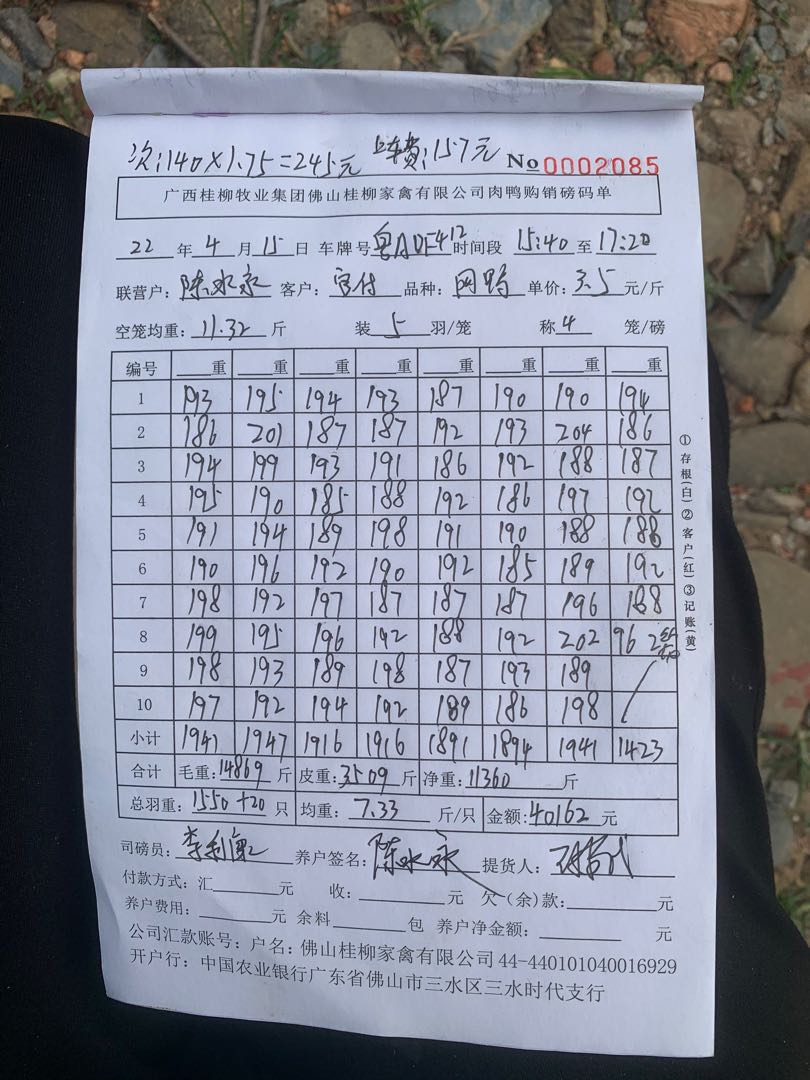 次:140×1.75=245元 上车费:157元 No 0002085
广西桂柳牧业集团佛山桂柳家禽有限公司肉鸭购销磅码单
22 年 4 月 15 日 车牌号 粤ADF412 时间段 15:40 至 17:20
联营户: 陈水永 客户: 官付 品种: 网鸭 单价: 3.5 元/斤
空笼均重: 11.32 斤 装 5 羽/笼 称 4 笼/磅
编号 重 重 重 重 重 重 重 重
1 193 195 194 193 187 190 190 194
2 186 201 187 187 192 193 204 186
3 194 199 193 191 186 192 188 187
4 195 190 185 188 192 186 197 192
5 191 194 189 198 191 190 188 188
6 190 196 192 190 192 185 189 192
7 198 192 197 187 187 187 196 188
8 199 195 196 192 188 192 202 96 2笼
9 198 193 189 198 187 193 189
10 197 192 194 192 189 186 198
小计 1941 1947 1916 1916 1891 1894 1941 1423
合计 毛重: 14869 斤 皮重: 3509 斤 净重: 11360 斤
总羽重: 1550+20 只 均重: 7.33 斤/只 金额: 40162 元
司磅员: 养户签名: 陈水永 提货人:
付款方式: 汇 元 收: 元 欠(余)款: 元
养户费用: 元 余料 包 养户净金额: 元
公司汇款账号: 户名: 佛山桂柳家禽有限公司 44-440101040016929
开户行: 中国农业银行广东省佛山市三水区三水时代支行
①存根(白)②客户(红)③记账(黄)